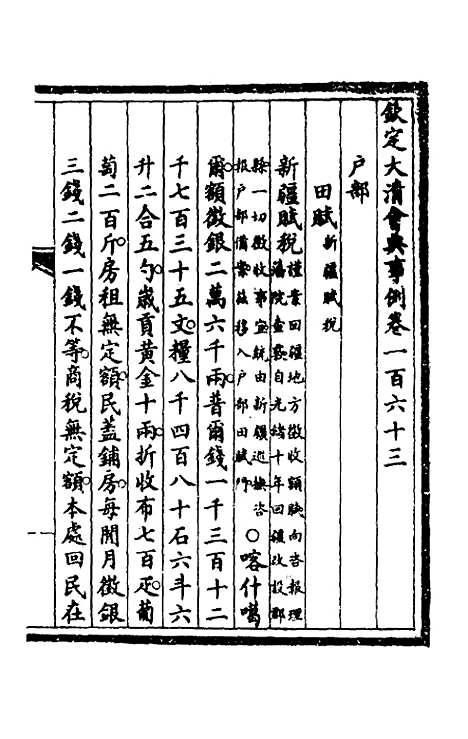 欽定大清會典事例卷一百六十三
戶部
田賦新疆賦稅
新疆賦稅謹案回疆地方徵收額賦向咨報理
藩院查覈自光緒十年回疆改設郡
縣一切徵收事宜統由新疆巡撫咨
報戶部備案茲移入戶部田賦門○喀什噶
爾額徵銀二萬六千兩普爾錢一千三百十二
千七百三十五文糧八千四百八十石六斗六
升二合五勺歲貢黃金十兩折收布七百疋葡
萄二百斤房租無定額民蓋鋪房每間月徵銀
三錢二錢一錢不等商稅無定額本處回民在